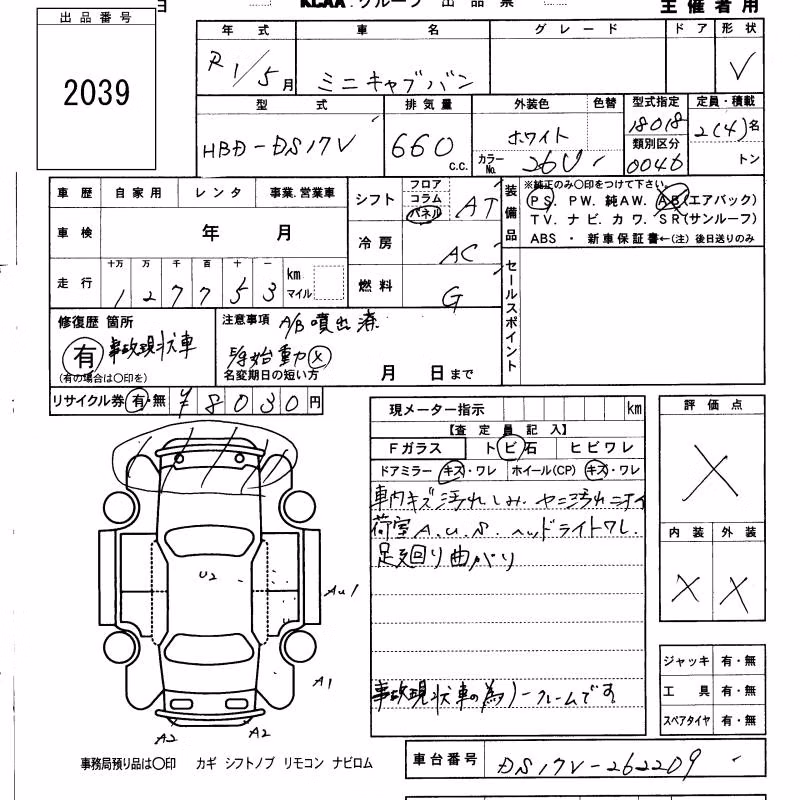 出品番号
2039
KCAA.グループ 出品票
主催者用
年式 車名 グレード ドア 形状
R1/5月 ミニキャブバン
型式 排気量 外装色 色替 型式指定 定員・積載
HBD-DS17V 660 c.c. ホワイト 18018 2(4)名
カラーNo. 26U 類別区分 0046 トン
車歴 自家用 レンタ 事業.営業車
車検 年 月
走行 十万 万 千 百 十 一 km マイル
127753
シフト フロア コラム パネル AT
冷房 AC
燃料 G
装備品
※純正のみ〇印をつけて下さい。
PS. PW. 純AW. AB(エアバック)
TV. ナビ. カワ. SR(サンルーフ)
ABS ・ 新車保証書←(注) 後日送りのみ
セールスポイント
修復歴 箇所
有 事故現状車
(有の場合は〇印を)
注意事項 A/B噴出済
E/g始動
名変期日の短い方 月 日まで
リサイクル券 有・無 ¥8030円
現メーター指示 km
【査定員記入】
Fガラス トビ石 ヒビワレ
ドアミラー キズ・ワレ ホイール(CP) キズ・ワレ
車内キズ汚れしみ.ヤニ汚れニオイ
荷室A.U.S.ヘッドライトワレ.
足廻り曲がり
事故現状車の為ノークレームです
評価点
内装 外装
U2
U
AU1
A1
A2 A2
ジャッキ 有・無
工具 有・無
スペアタイヤ 有・無
事務局預り品は〇印 カギ シフトノブ リモコン ナビロム
車台番号 DS17V-262209